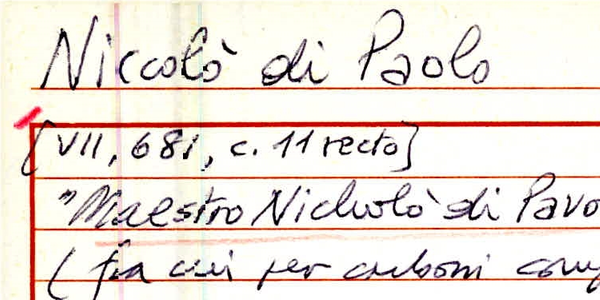 Niccolò di Paolo
[VII, 681, c. 11 recto]
"Maestro Nicholò di Pavo
(fra cui per carboni comp